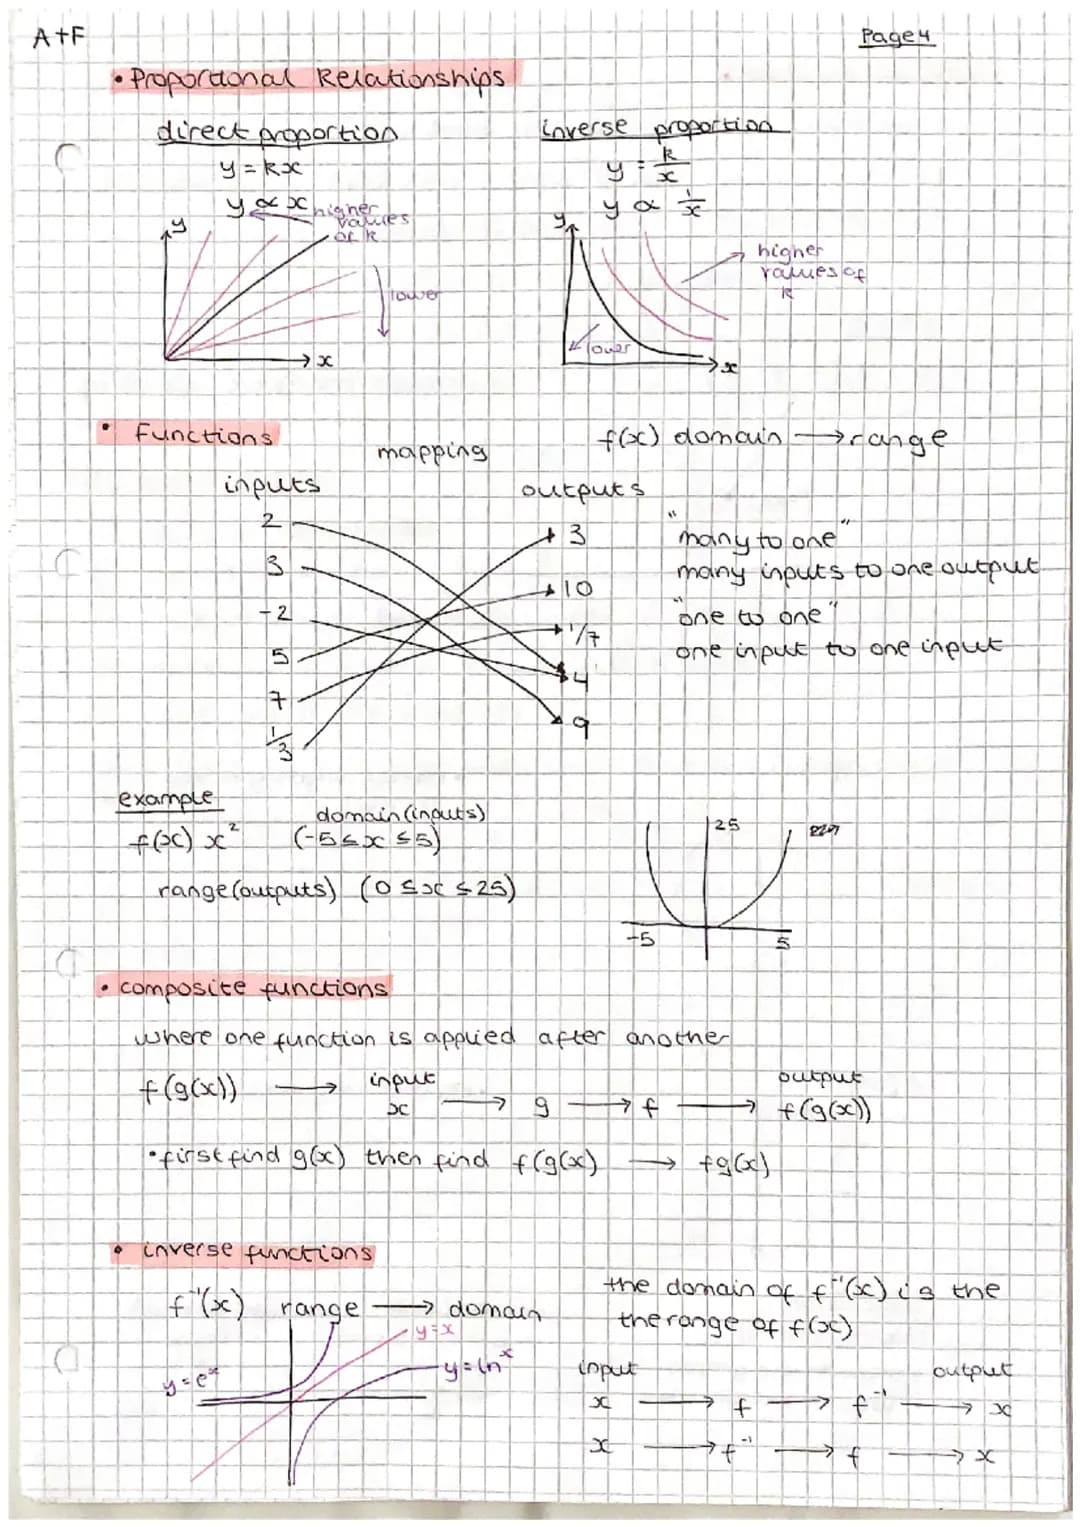 A+F
Page 4
• Proportional Relationships
direct proportion
y = kx
y ∝ x
higher
values
of k
y
lower
x
inverse proportion
y = k/x
y ∝ 1/x
y
higher
values of
k
lower
x
• Functions
mapping
f(x) domain → range
inputs
outputs
2
3
-2
5
7
1/3
3
10
1/7
4
9
"many to one"
many inputs to one output
"one to one"
one input to one input
example
f(x) x²
domain (inputs)
(-5 ≤ x ≤ 5)
range (outputs) (0 ≤ x ≤ 25)
25
-5
5
• composite functions
where one function is applied after another
f(g(x)) → input x → g → f → output f(g(x))
• first find g(x) then find f(g(x) → fg(x)
• inverse functions
f⁻¹(x) range → domain
y=x
y=eˣ
y=lnˣ
the domain of f⁻¹(x) is the
the range of f(x)
input
output
x → f → f⁻¹ → x
x → f⁻¹ → f → x